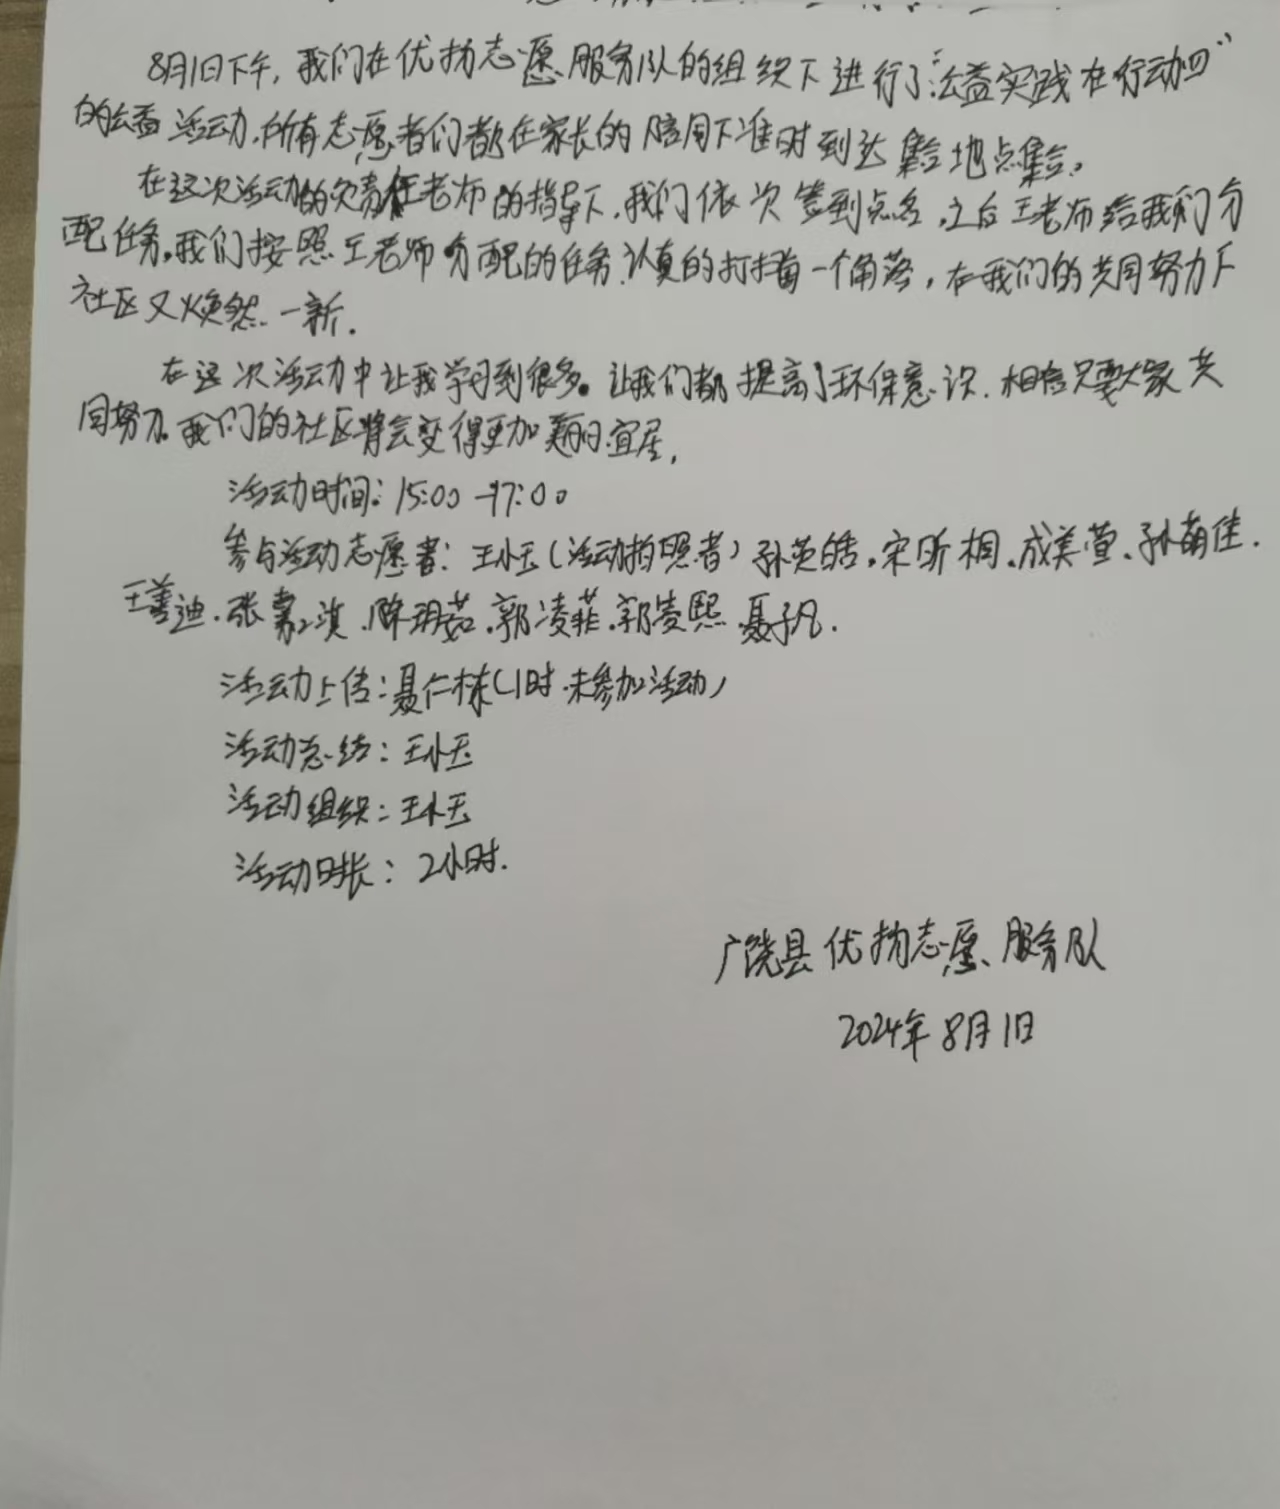 8月1日下午，我们在优扬志愿服务队的组织下进行了“公益实践在行动四”
的公益活动，所有志愿者们都在家长的陪同下准时到达集合地点集合。
在这次活动的负责任老师的指导下，我们依次签到点名，之后王老师给我们分
配任务。我们按照王老师分配的任务认真的打扫每一个角落，在我们的共同努力下
社区又焕然一新.
在这次活动中让我学习到很多。让我们都提高了环保意识.相信只要大家共
同努力，我们的社区将会变得更加美丽宜居，
活动时间：15:00-17:00
参与活动志愿者：王小玉（活动拍照者）孙英皓，宋昕桐、成美萱、孙萌佳.
王善迪.张淇.陈玥茹.郭凌菲.郭凌熙.聂子凡.
活动上传：聂仁栋（1时.未参加活动）
活动总结：王小玉
活动组织：王小玉
活动时长：2小时.
广饶县优扬志愿服务队
2024年8月1日